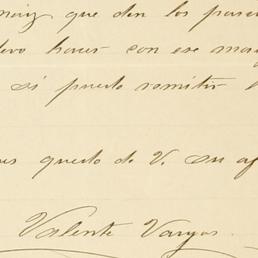 maiz que den los
devo hacer con ese
si puedo remitir
quedo de V. su
Valente Vargas